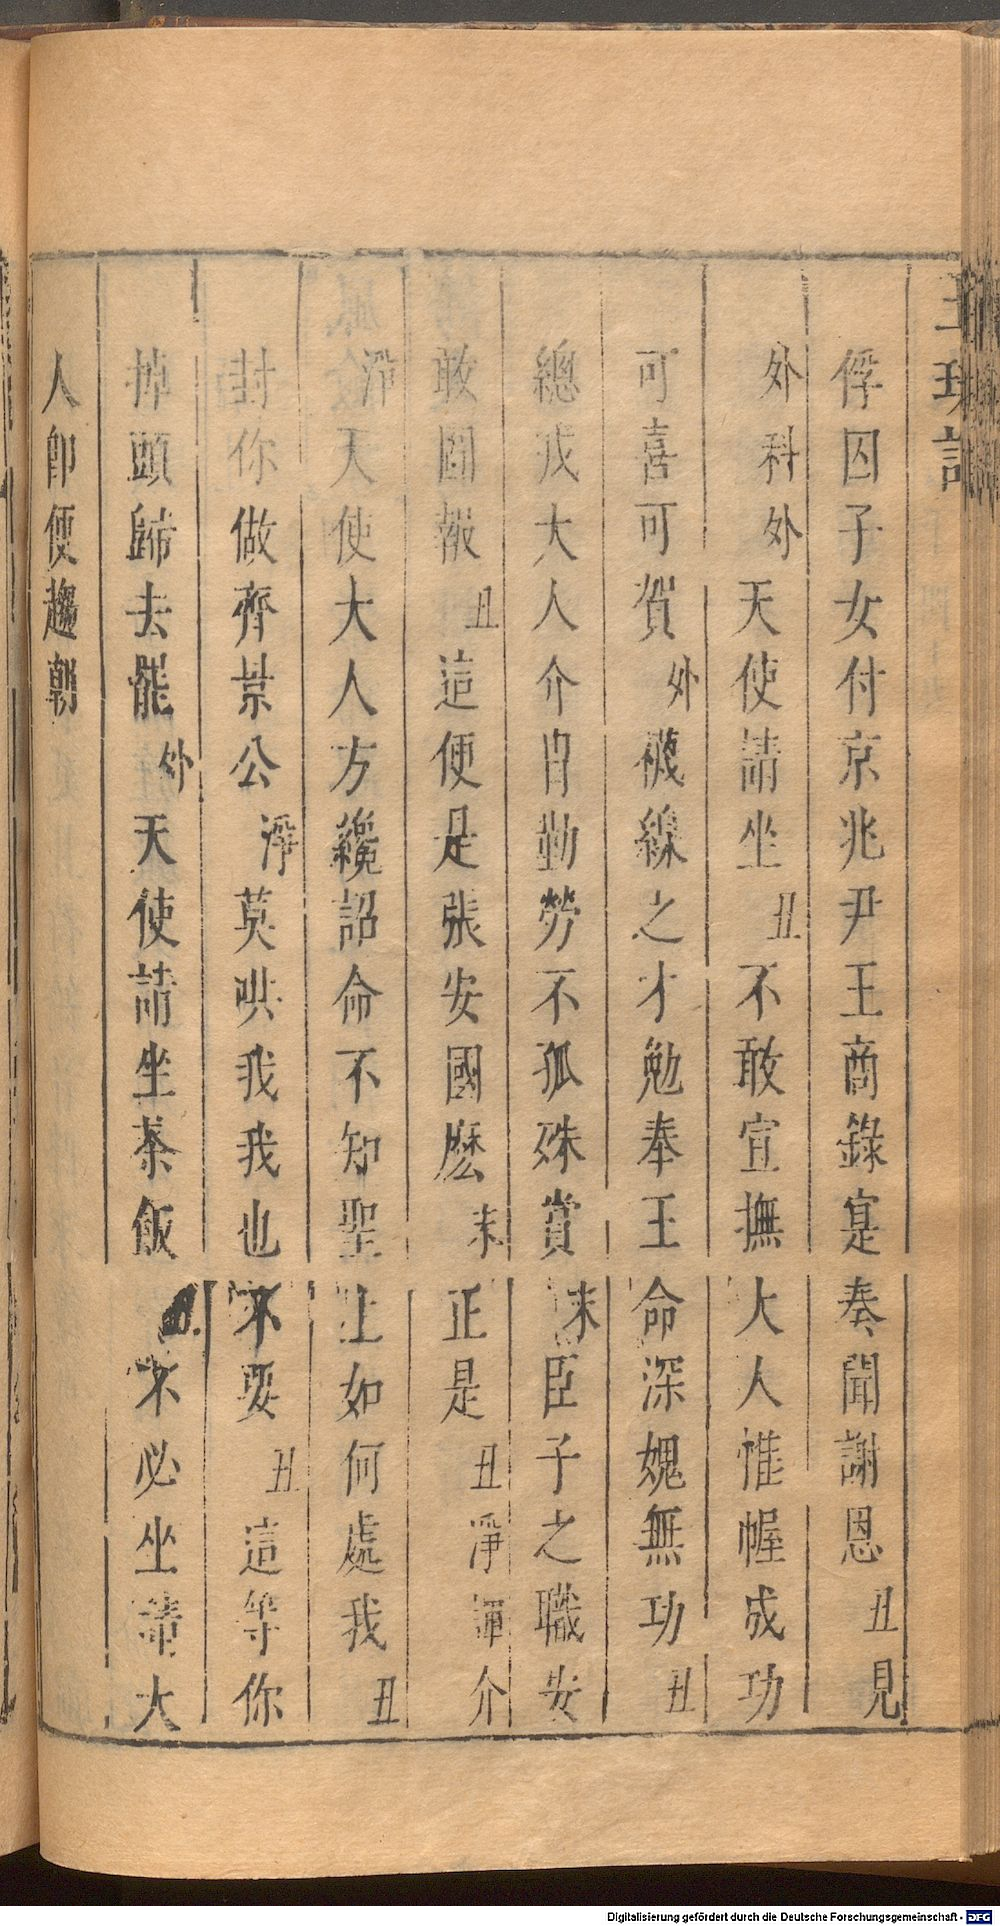 玉玦記
俘囚子女付京兆尹王商錄寔奏聞謝恩丑見
外科外天使請坐丑不敢宜撫大人惟幄成功
可喜可賀外襪線之才勉奉王命深媿無功丑
總戎大人介冑勤勞不孤殊賞末臣子之職安
敢圖報丑這便是張安國麽末正是丑淨諢介
淨天使大人方纔詔命不知聖上如何處我丑
封你做齊景公淨莫哄我我也不要丑這等你
掉頭歸去罷外天使請坐茶飯丑不必坐請大
人卽便趨朝
Digitalisierung gefördert durch die Deutsche Forschungsgemeinschaft - DFG